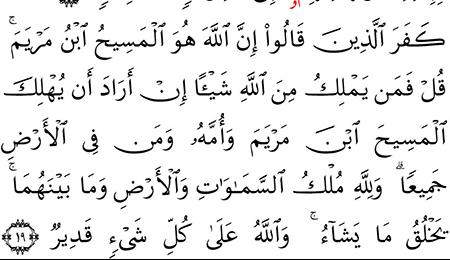 أو
كَفَرَ ٱلَّذِينَ قَالُوٓاْ إِنَّ ٱللَّهَ هُوَ ٱلْمَسِيحُ ٱبْنُ مَرْيَمَ ۚ
قُلْ فَمَن يَمْلِكُ مِنَ ٱللَّهِ شَيْـًٔا إِنْ أَرَادَ أَن يُهْلِكَ
ٱلْمَسِيحَ ٱبْنَ مَرْيَمَ وَأُمَّهُۥ وَمَن فِى ٱلْأَرْضِ
جَمِيعًا ۗ وَلِلَّهِ مُلْكُ ٱلسَّمَـٰوَٰتِ وَٱلْأَرْضِ وَمَا بَيْنَهُمَا ۚ
يَخْلُقُ مَا يَشَآءُ ۚ وَٱللَّهُ عَلَىٰ كُلِّ شَىْءٍ قَدِيرٌ ١٩